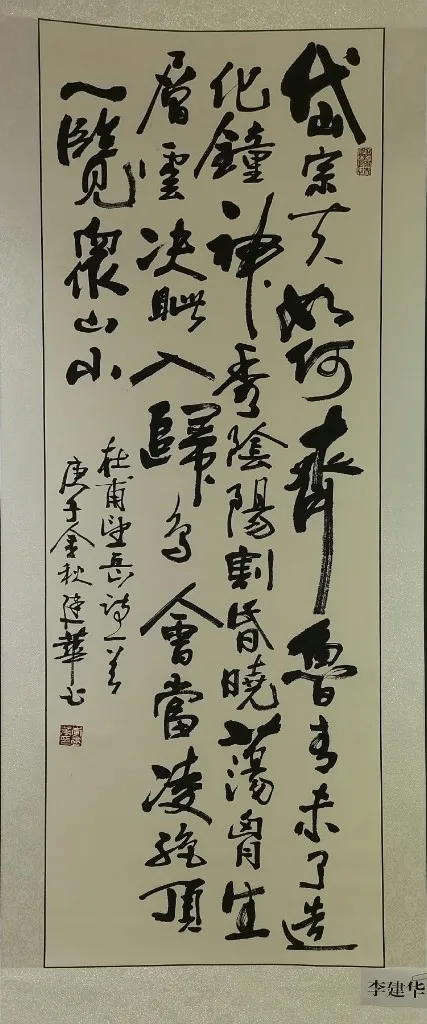 岱宗夫如何齊魯青未了造
化鐘神秀陰陽割昏曉蕩胷生
層雲决眦入歸鳥會當凌絕頂
一覽衆山小
杜甫望岳詩一首
庚子金秋建華书
李建华